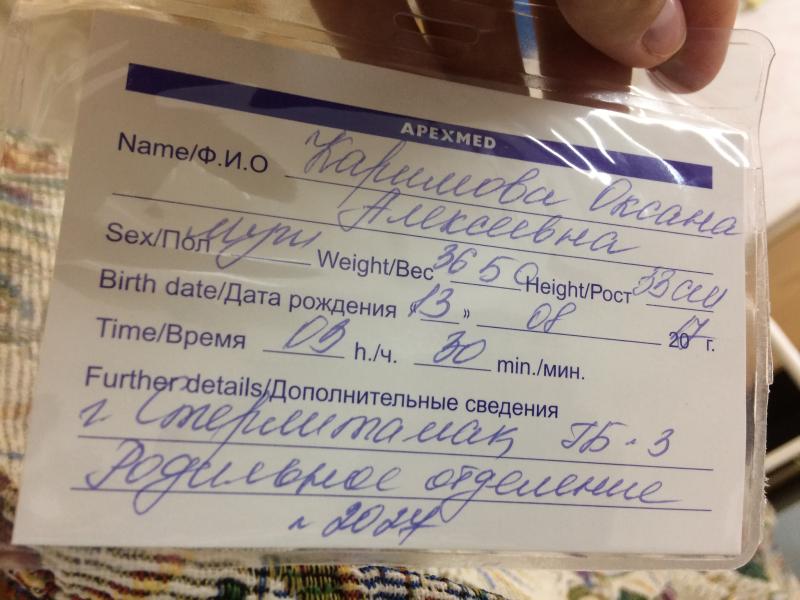 APEXMED
Name/Ф.И.О Каримова Оксана
Алексеевна
Sex/Пол Weight/Вес 3650 Height/Рост 53 см
Birth date/Дата рождения «13» 08 2017 г.
Time/Время 09 h./ч. 30 min./мин.
Further details/Дополнительные сведения
г Стерлитамак ГБ-3
Родильное отделение